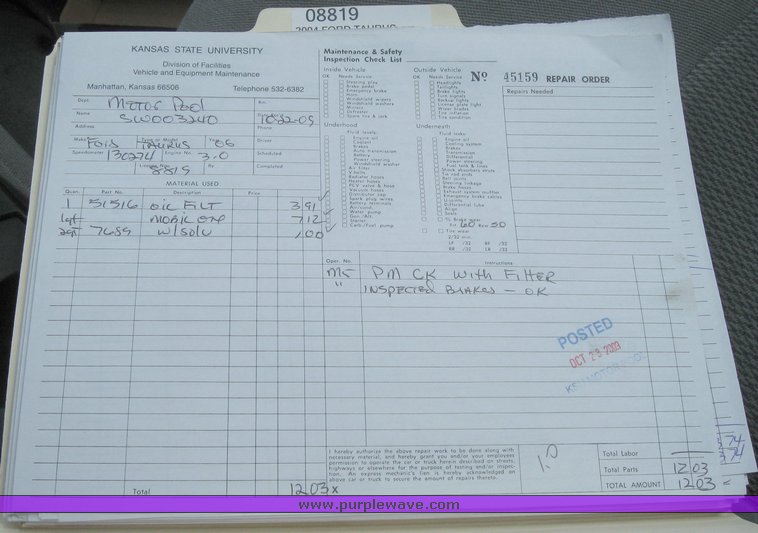 08819
2004 FORD TAURUS
KANSAS STATE UNIVERSITY
Division of Facilities
Vehicle and Equipment Maintenance
Manhattan, Kansas 66506 Telephone 532-6382
Dept. Motor Pool
Name SW003240
10-22-09
Address Phone
Make Type or Model Year
TAURUS 06
Speedometer 130274 Engine No. 3.0 Scheduled
License No. 8819 By Completed
MATERIAL USED
Quan. Part No. Description Price
1 51516 OIL FILT 3.91
MOBIL 7.12
7689 W/SOLV 1.00
Total 12.03 x
Maintenance & Safety
Inspection Check List
Inside Vehicle
OK Needs Service
Steering play
Brake pedal
Emergency brake
Horn
Windshield wipers
Windshield washers
Mirrors
Defroster
Spare tire & jack
Underhood
Fluid levels:
Engine oil
Coolant
Brakes
Auto transmission
Battery
Power steering
Windshield washer
Air filter
V-belts
Radiator hoses
Heater hoses
PCV valve & hose
Vacuum hoses
Distributor cap
Spark plug wires
Battery terminals
Water pump
Gen./Alt.
Starter
Carb./fuel pump
Outside Vehicle
OK Needs Service
Headlights
Taillights
Brake lights
Turn signals
Backup lights
License plate light
Wiper blades
Tire inflation
Tire condition
Underneath
Fluid leaks:
Engine oil
Cooling system
Brakes
Transmission
Differential
Power steering
Fuel tank & lines
Shock absorbers struts
Tie rod ends
Ball joints
Steering linkage
Brake hoses
Exhaust system muffler
Emergency brake cables
U-joints
Differential lube
Align
Seals
% Brake wear
Frt. 60 Rear 50
Tire wear
2/32 min.
LF /32 RF /32
RR /32 LR /32
Nº 45159 REPAIR ORDER
Repairs Needed
Oper. No. Instructions
M5 PM CK WITH FILTER
" INSPECTED BRAKES - OK
POSTED
OCT 23 2009
KSU MOTOR POOL
I hereby authorize the above repair work to be done along with
necessary material, and hereby grant you and/or your employees
permission to operate the car or truck herein described on streets,
highways or elsewhere for the purpose of testing and/or inspec-
tion. An express mechanic's lien is hereby acknowledged on
above car or truck to secure the amount of repairs thereto.
1.0
Total Labor
Total Parts 12.03
TOTAL AMOUNT 12.03
74
74
www.purplewave.com